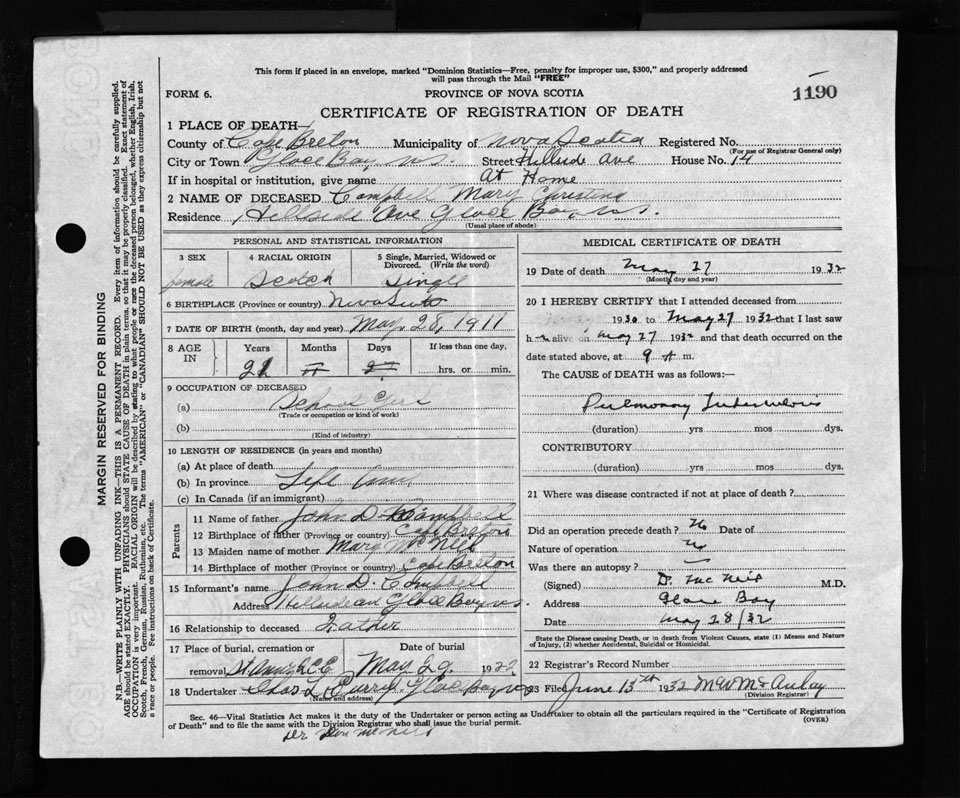 This form if placed in an envelope, marked "Dominion Statistics—Free, penalty for improper use, $300," and properly addressed
will pass through the Mail "FREE"
FORM 6.
PROVINCE OF NOVA SCOTIA
1190
CERTIFICATE OF REGISTRATION OF DEATH
1 PLACE OF DEATH—
County of Cape Breton Municipality of Nova Scotia Registered No.
(For use of Registrar General only)
City or Town Glace Bay, N.S. Street Hillside Ave House No. 14
If in hospital or institution, give name At Home
2 NAME OF DECEASED Campbell Mary
Residence Hillside Ave Glace Bay N.S.
(Usual place of abode)
PERSONAL AND STATISTICAL INFORMATION
3 SEX 4 RACIAL ORIGIN 5 Single, Married, Widowed or Divorced. (Write the word)
female Scotch Single
6 BIRTHPLACE (Province or country) Nova Scotia
7 DATE OF BIRTH (month, day and year) May 28, 1911
8 AGE IN Years Months Days If less than one day,
21 hrs. or min.
9 OCCUPATION OF DECEASED
(a) School
(Trade or occupation or kind of work)
(b)
(Kind of industry)
10 LENGTH OF RESIDENCE (in years and months)
(a) At place of death
(b) In province Life
(c) In Canada (if an immigrant)
Parents
11 Name of father John D. Campbell
12 Birthplace of father (Province or country) Cape Breton
13 Maiden name of mother Mary McNeil
14 Birthplace of mother (Province or country) Cape Breton
15 Informant's name John D. Campbell
Address Glace Bay N.S.
16 Relationship to deceased Father
17 Place of burial, cremation or removal Date of burial
May 29, 1932
18 Undertaker Chas. L. Curry. Glace Bay N.S.
(Name and address)
MEDICAL CERTIFICATE OF DEATH
19 Date of death May 27 1932
(Month, day and year)
20 I HEREBY CERTIFY that I attended deceased from
1930 to May 27 1932 that I last saw
h er alive on May 27 1932 and that death occurred on the
date stated above, at 9 A m.
The CAUSE of DEATH was as follows:—
Pulmonary Tuberculosis
(duration) yrs mos dys.
CONTRIBUTORY
(duration) yrs mos dys.
21 Where was disease contracted if not at place of death?
Did an operation precede death? No Date of
Nature of operation
Was there an autopsy?
(Signed) D. McNeil M.D.
Address Glace Bay
Date May 28/32
State the Disease causing Death, or in death from Violent Causes, state (1) Means and Nature
of Injury, (2) whether Accidental, Suicidal or Homicidal.
22 Registrar's Record Number
23 Filed June 13th 1932 McAulay
(Division Registrar)
Sec. 46—Vital Statistics Act makes it the duty of the Undertaker or person acting as Undertaker to obtain all the particulars required in the "Certificate of Registration
of Death" and to file the same with the Division Registrar who shall issue the burial permit.
(OVER)
Dr McNeil
MARGIN RESERVED FOR BINDING
N.B.—WRITE PLAINLY WITH UNFADING INK—THIS IS A PERMANENT RECORD. Every item of information should be carefully supplied.
AGE should be stated EXACTLY. PHYSICIANS should STATE CAUSE OF DEATH in plain terms, so that it may be properly classified. Exact statement of
OCCUPATION is very important. RACIAL ORIGIN will be described by stating to what people or race the deceased person belonged, whether English, Irish,
Scotch, French, German, Russian, Ruthenian, etc. The terms "AMERICAN" or "CANADIAN" SHOULD NOT BE USED as they express citizenship but not
a race or people. See instructions on back of Certificate.